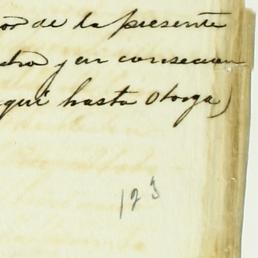 de la presente
y en consecuen
qui hasta otorga)
123